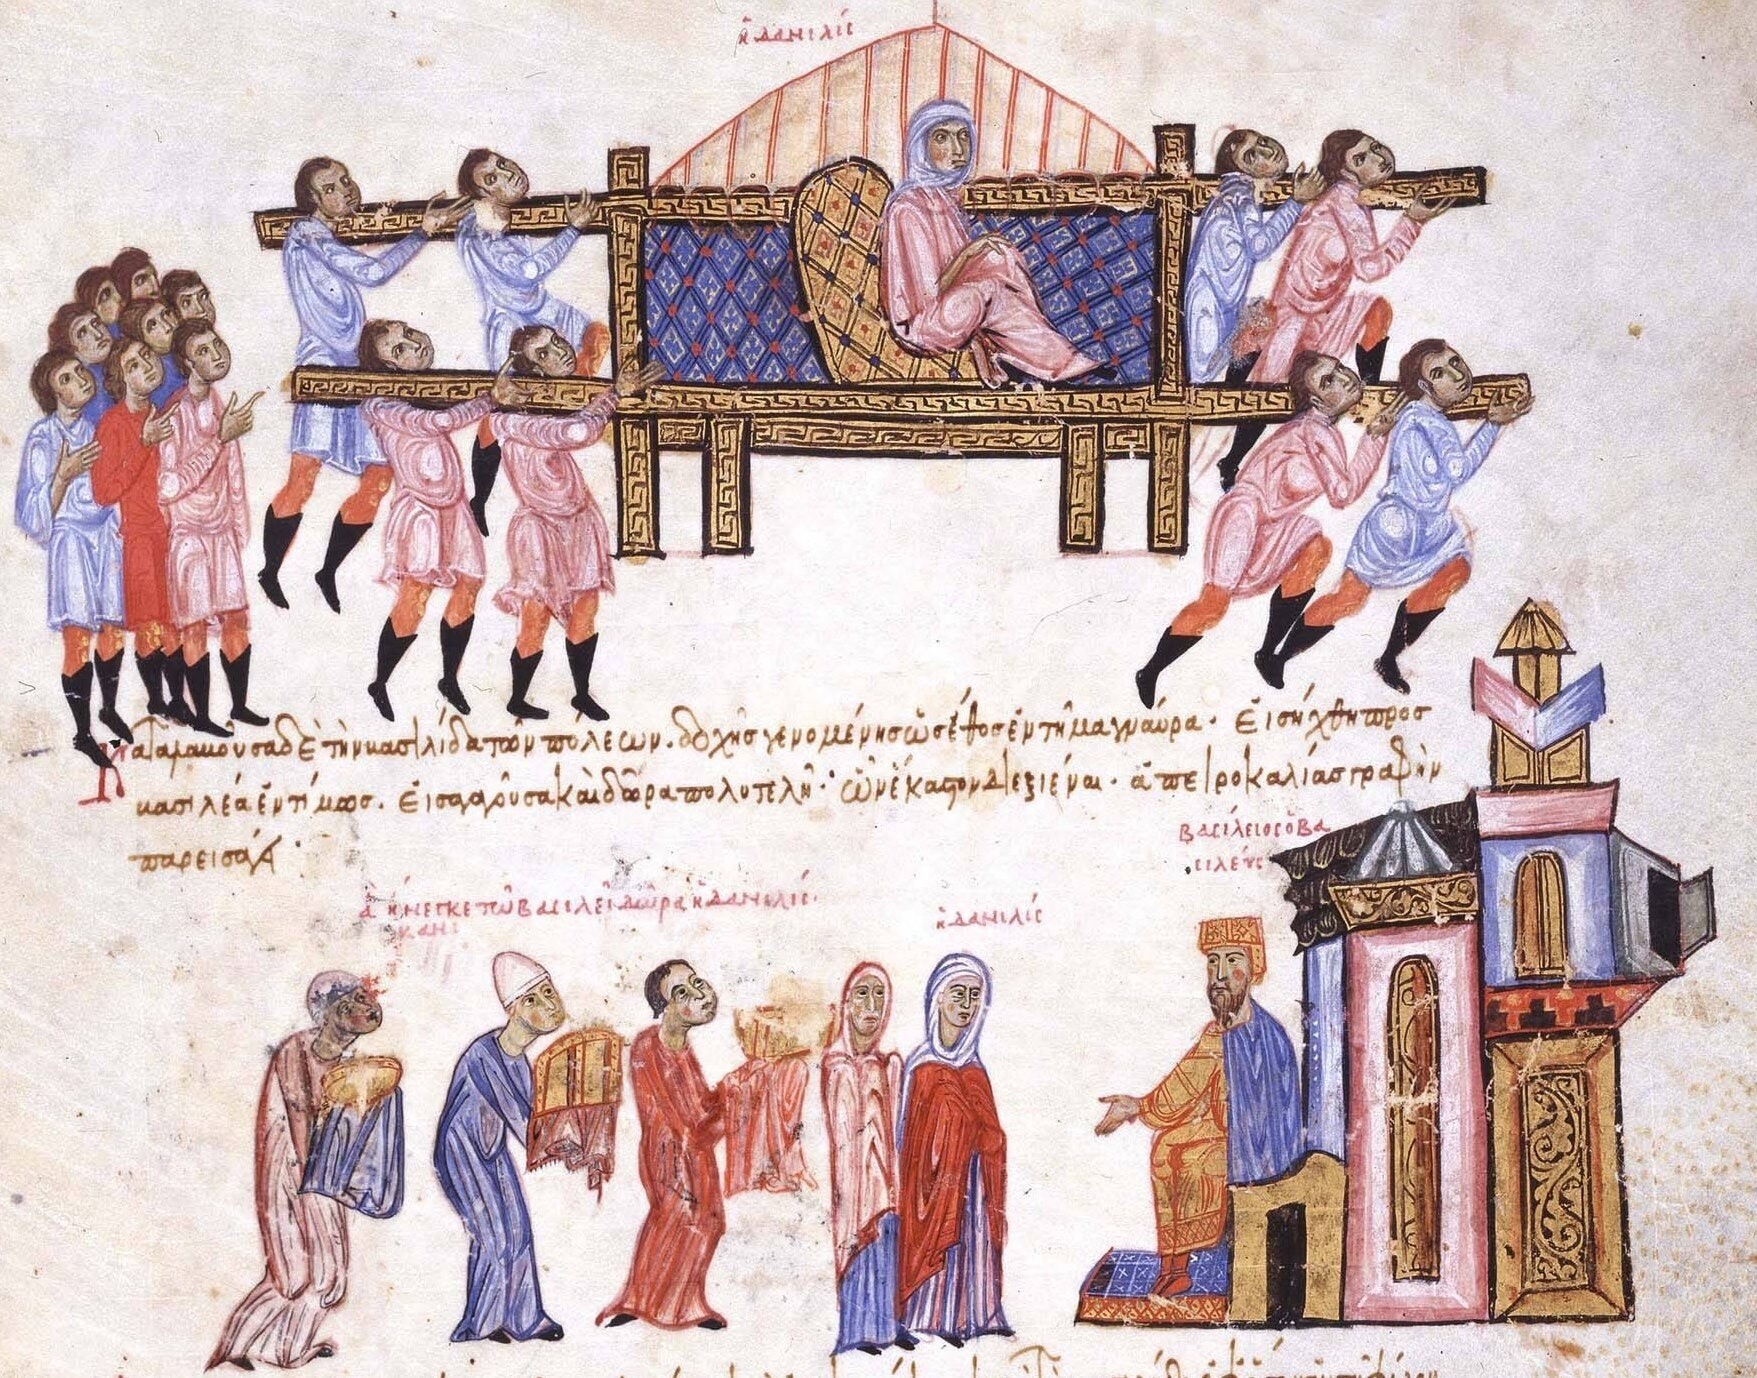 ἡ δανιλὶς
καταλαμβάνουσα δὲ τὴν βασιλίδα τῶν πόλεων. δοχῆς γενομένης ὡς ἔθος ἐν τῇ μαγναύρα. εἰσήχθη πρὸς
βασιλέα ἐντίμως. εἰσάγουσα καὶ δῶρα πολυτελῆ. ὧν ἕκαστον διεξιέναι. ἀπειροκαλίας γραφὴν
παρεισάγ
βασίλειος ὁ βα
σιλεὺς
ἃ ἤνεγκε τῶ βασιλεῖ δῶρα ἡ δανιλὶς
ἡ δανιλὶς